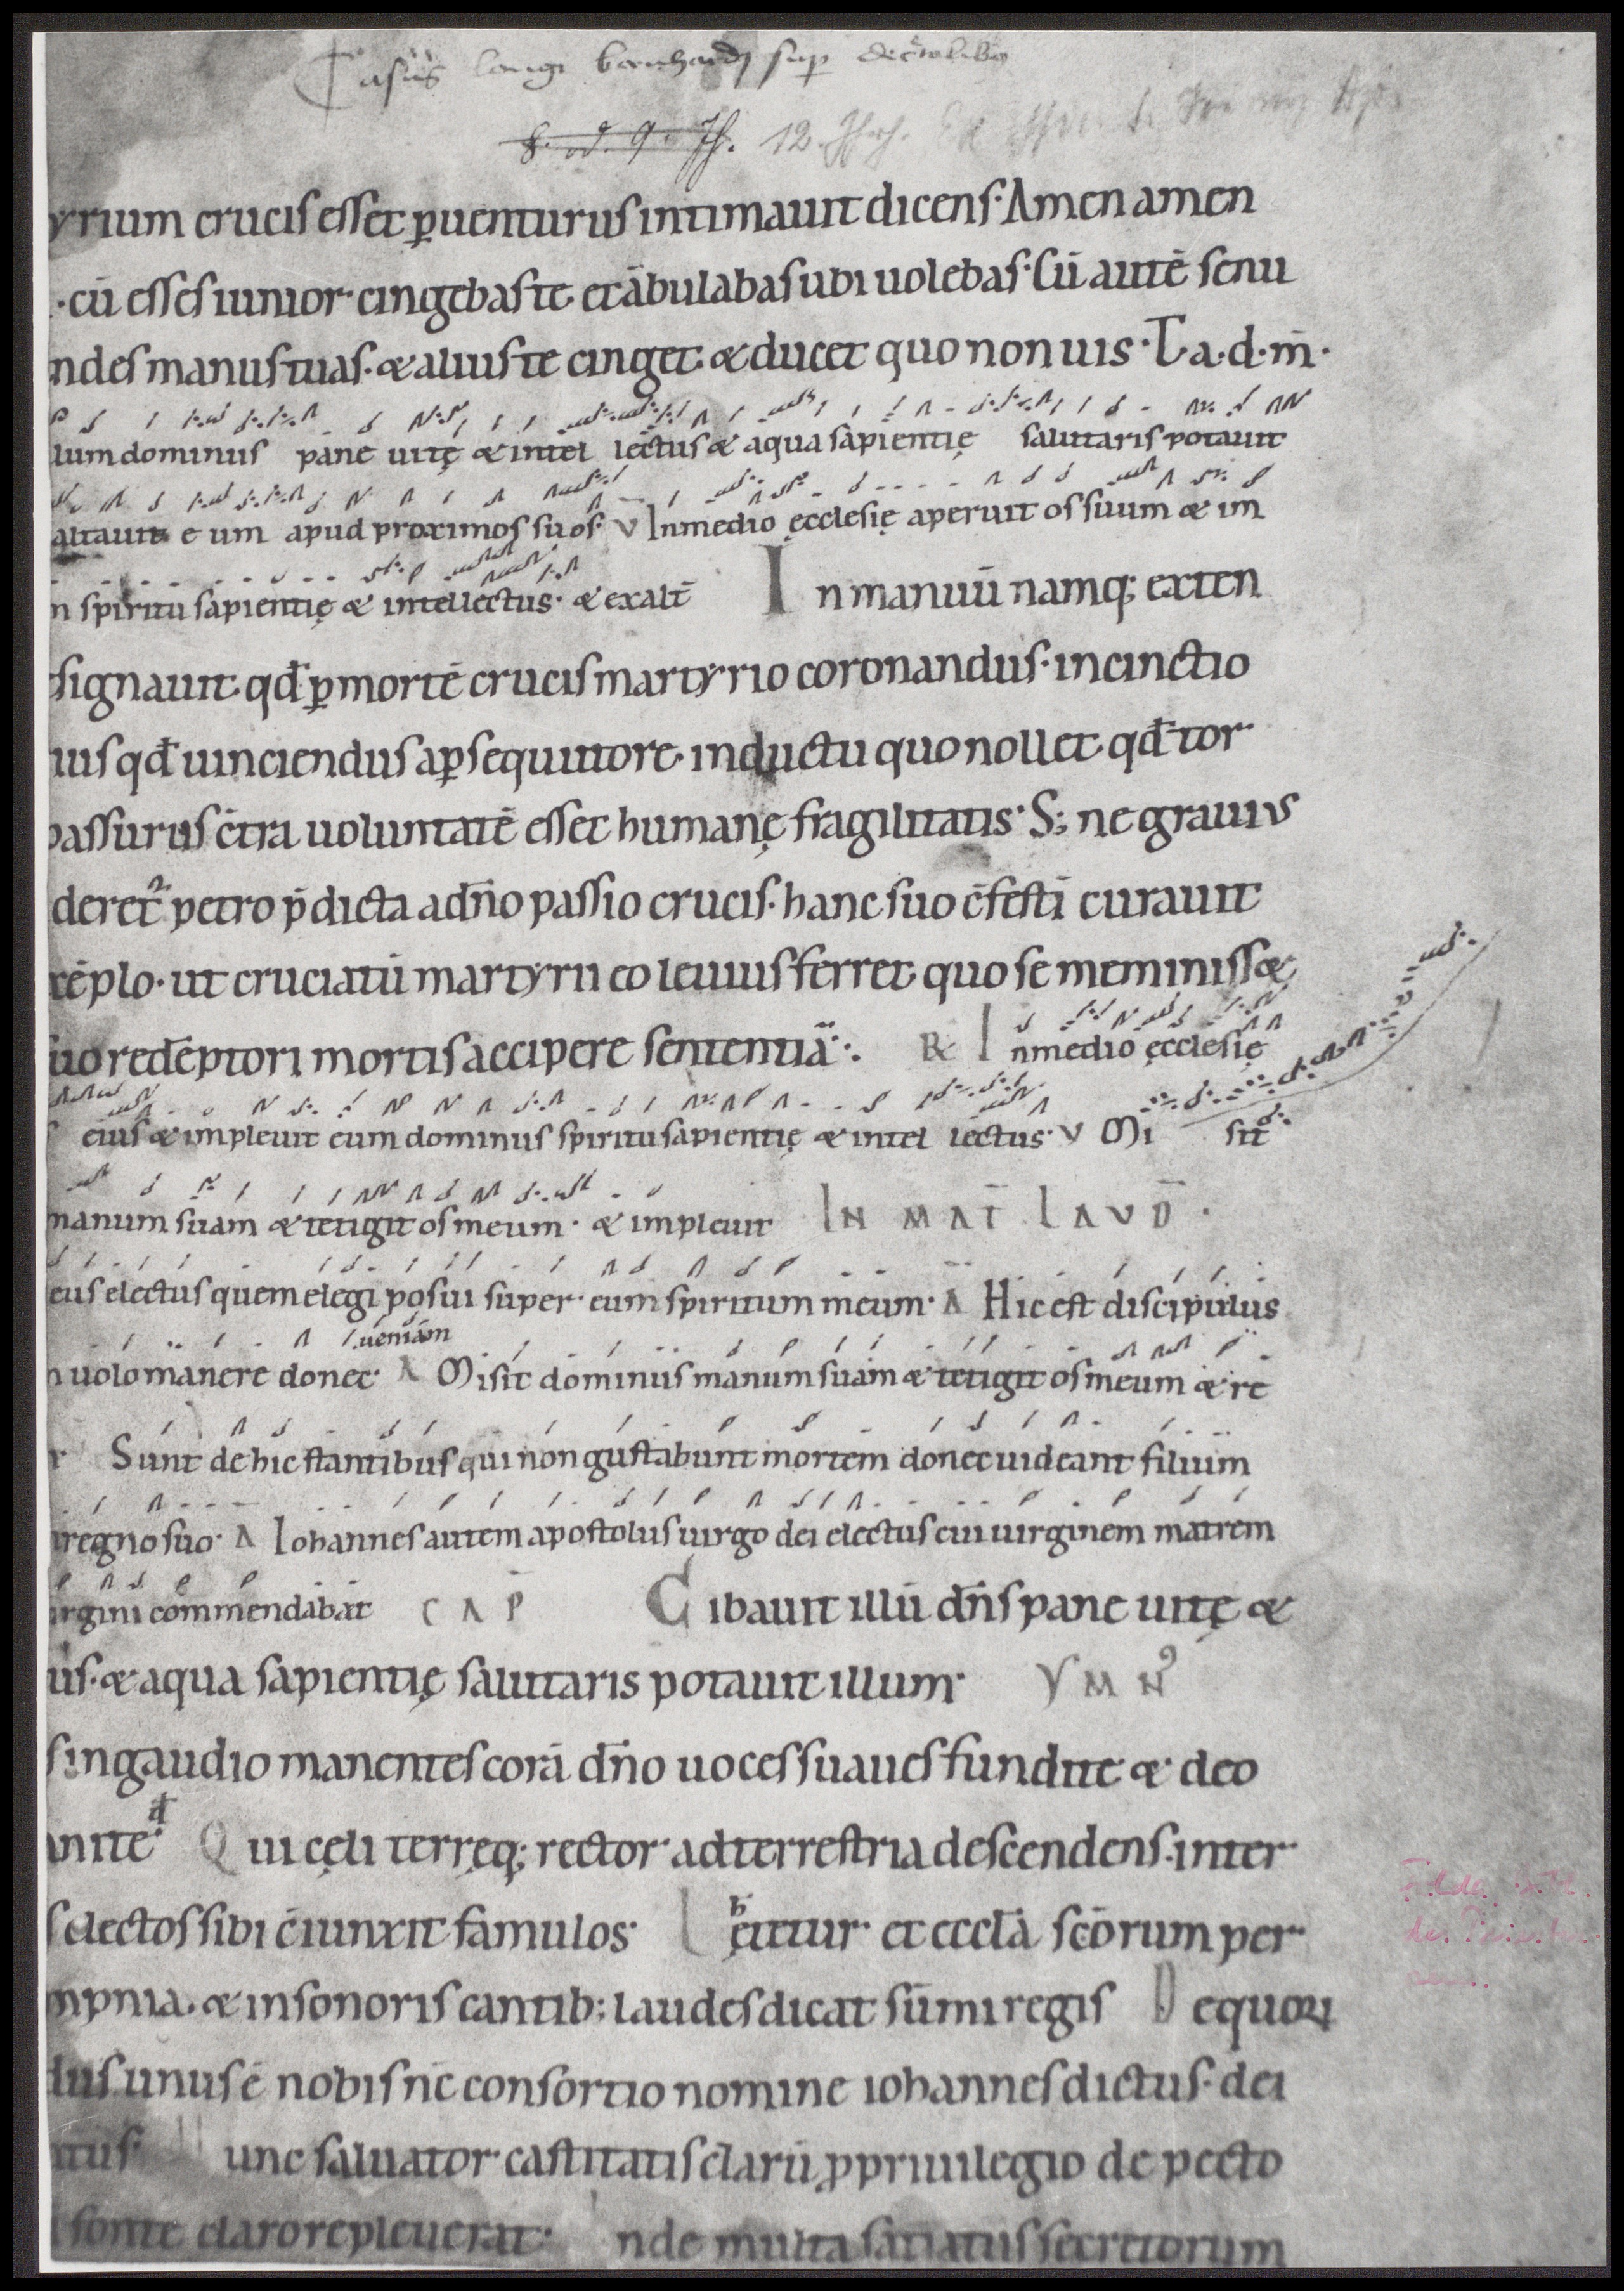 Casus longi bernhardi sup decretalibus
8. od. 9. Jh. 12. Jhrh.
yrium crucis esset ꝑuenturus intimauit dicens· Amen amen
·cū esses iunior· cingebas te· et ābulabas ubi uolebas· Cū autē senu
ndes manus tuas· & alius te cinget· & ducet quo non uis· T· a· d· m̄·
lum dominus pane uitę & intel lectus & aqua sapientię salutaris potauit
altauit e um apud proximos suos· V In medio ęcclesię aperuit os suum & im
n spiritu sapientię & intellectus· & exalt̄ In manuū namq; exten
signauit· qđ ꝑ mortē crucis martyrio coronandus· in cinctio
ius qđ uinciendus a ꝑsequutore· in ductu quo nollet· qđ tor
passurus c̄tra uoluntatē esset humanę fragilitatis· S; ne grauius
deret᷑ petro p̄dicta a dn̄o passio crucis· hanc suo c̄festī curauit
xēplo· ut cruciatū martyrii eo leuius ferret· quo se meminiss&
suo redēptori mortis accipere sententiā·. R& In medio ęcclesię
eius & impleuit eum dominus spiritu sapientię & intel lectus· V Mi sit
manum suam & tetigit os meum· & impleuit IN MAT̄ LAVD̄·
eus electus quem elegi posui super· eum spiritum meum· A Hic est discipulus
ueniam
n uolo manere donec· A Misit dominus manum suam & tetigit os meum & re
r Sunt de hic stantibus qui non gustabunt mortem donec uideant filium
regno suo· A Iohannes autem apostolus uirgo dei electus cui uirginem matrem
irgini commendabat CAP̄ Cibauit illū dn̄s pane uitę &
us· & aqua sapientię salutaris potauit illum· YMN⁹
s in gaudio manentes corā dn̄o uoces suaues fundite & deo
anite· Qui cęli terręq; rector· ad terrestria descendens· inter
s electos sibi c̄iunxit famulos· Lętitur· et eccl̄a scōrum per·
mpnia· & in sonoris cantib; laudes dicat sūmi regis D e quoꝝ
lus unus ē nobis n̄c consortio nomine iohannes dictus· dei
tus· unc saluator· castitatis clarū ꝓ priuilegio de pecto
fonte claro repleuerat· nde multa satiatus secretorum